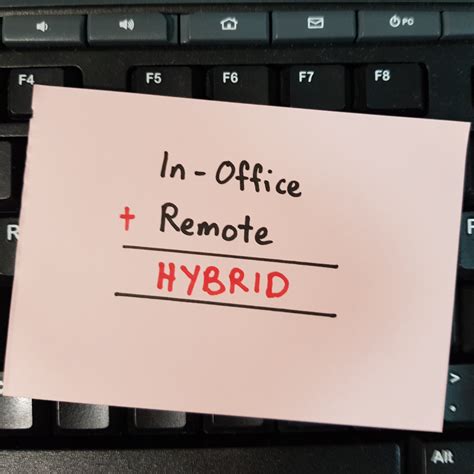 PC
F4 F5 F6 F7 F8
In-Office
+ Remote
HYBRID
R
Alt